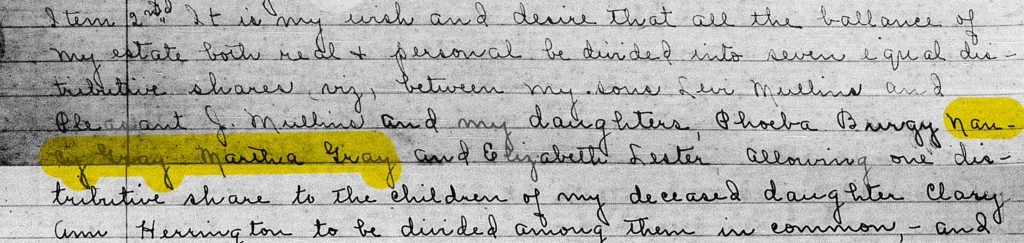 Item 2nd,, It is my wish and desire that all the ballance of
my estate both real + personal be divided into seven equal dis-
tributive shares, viz, between my sons Levi Mullins and
Pleasant J. Mullins and my daughters, Phoeba Burgy Nan-
cy Gray Martha Gray and Elizabeth Lester allowing one dis-
tributive share to the children of my deceased daughter Clary
Ann Herrington to be divided among them in common, - and